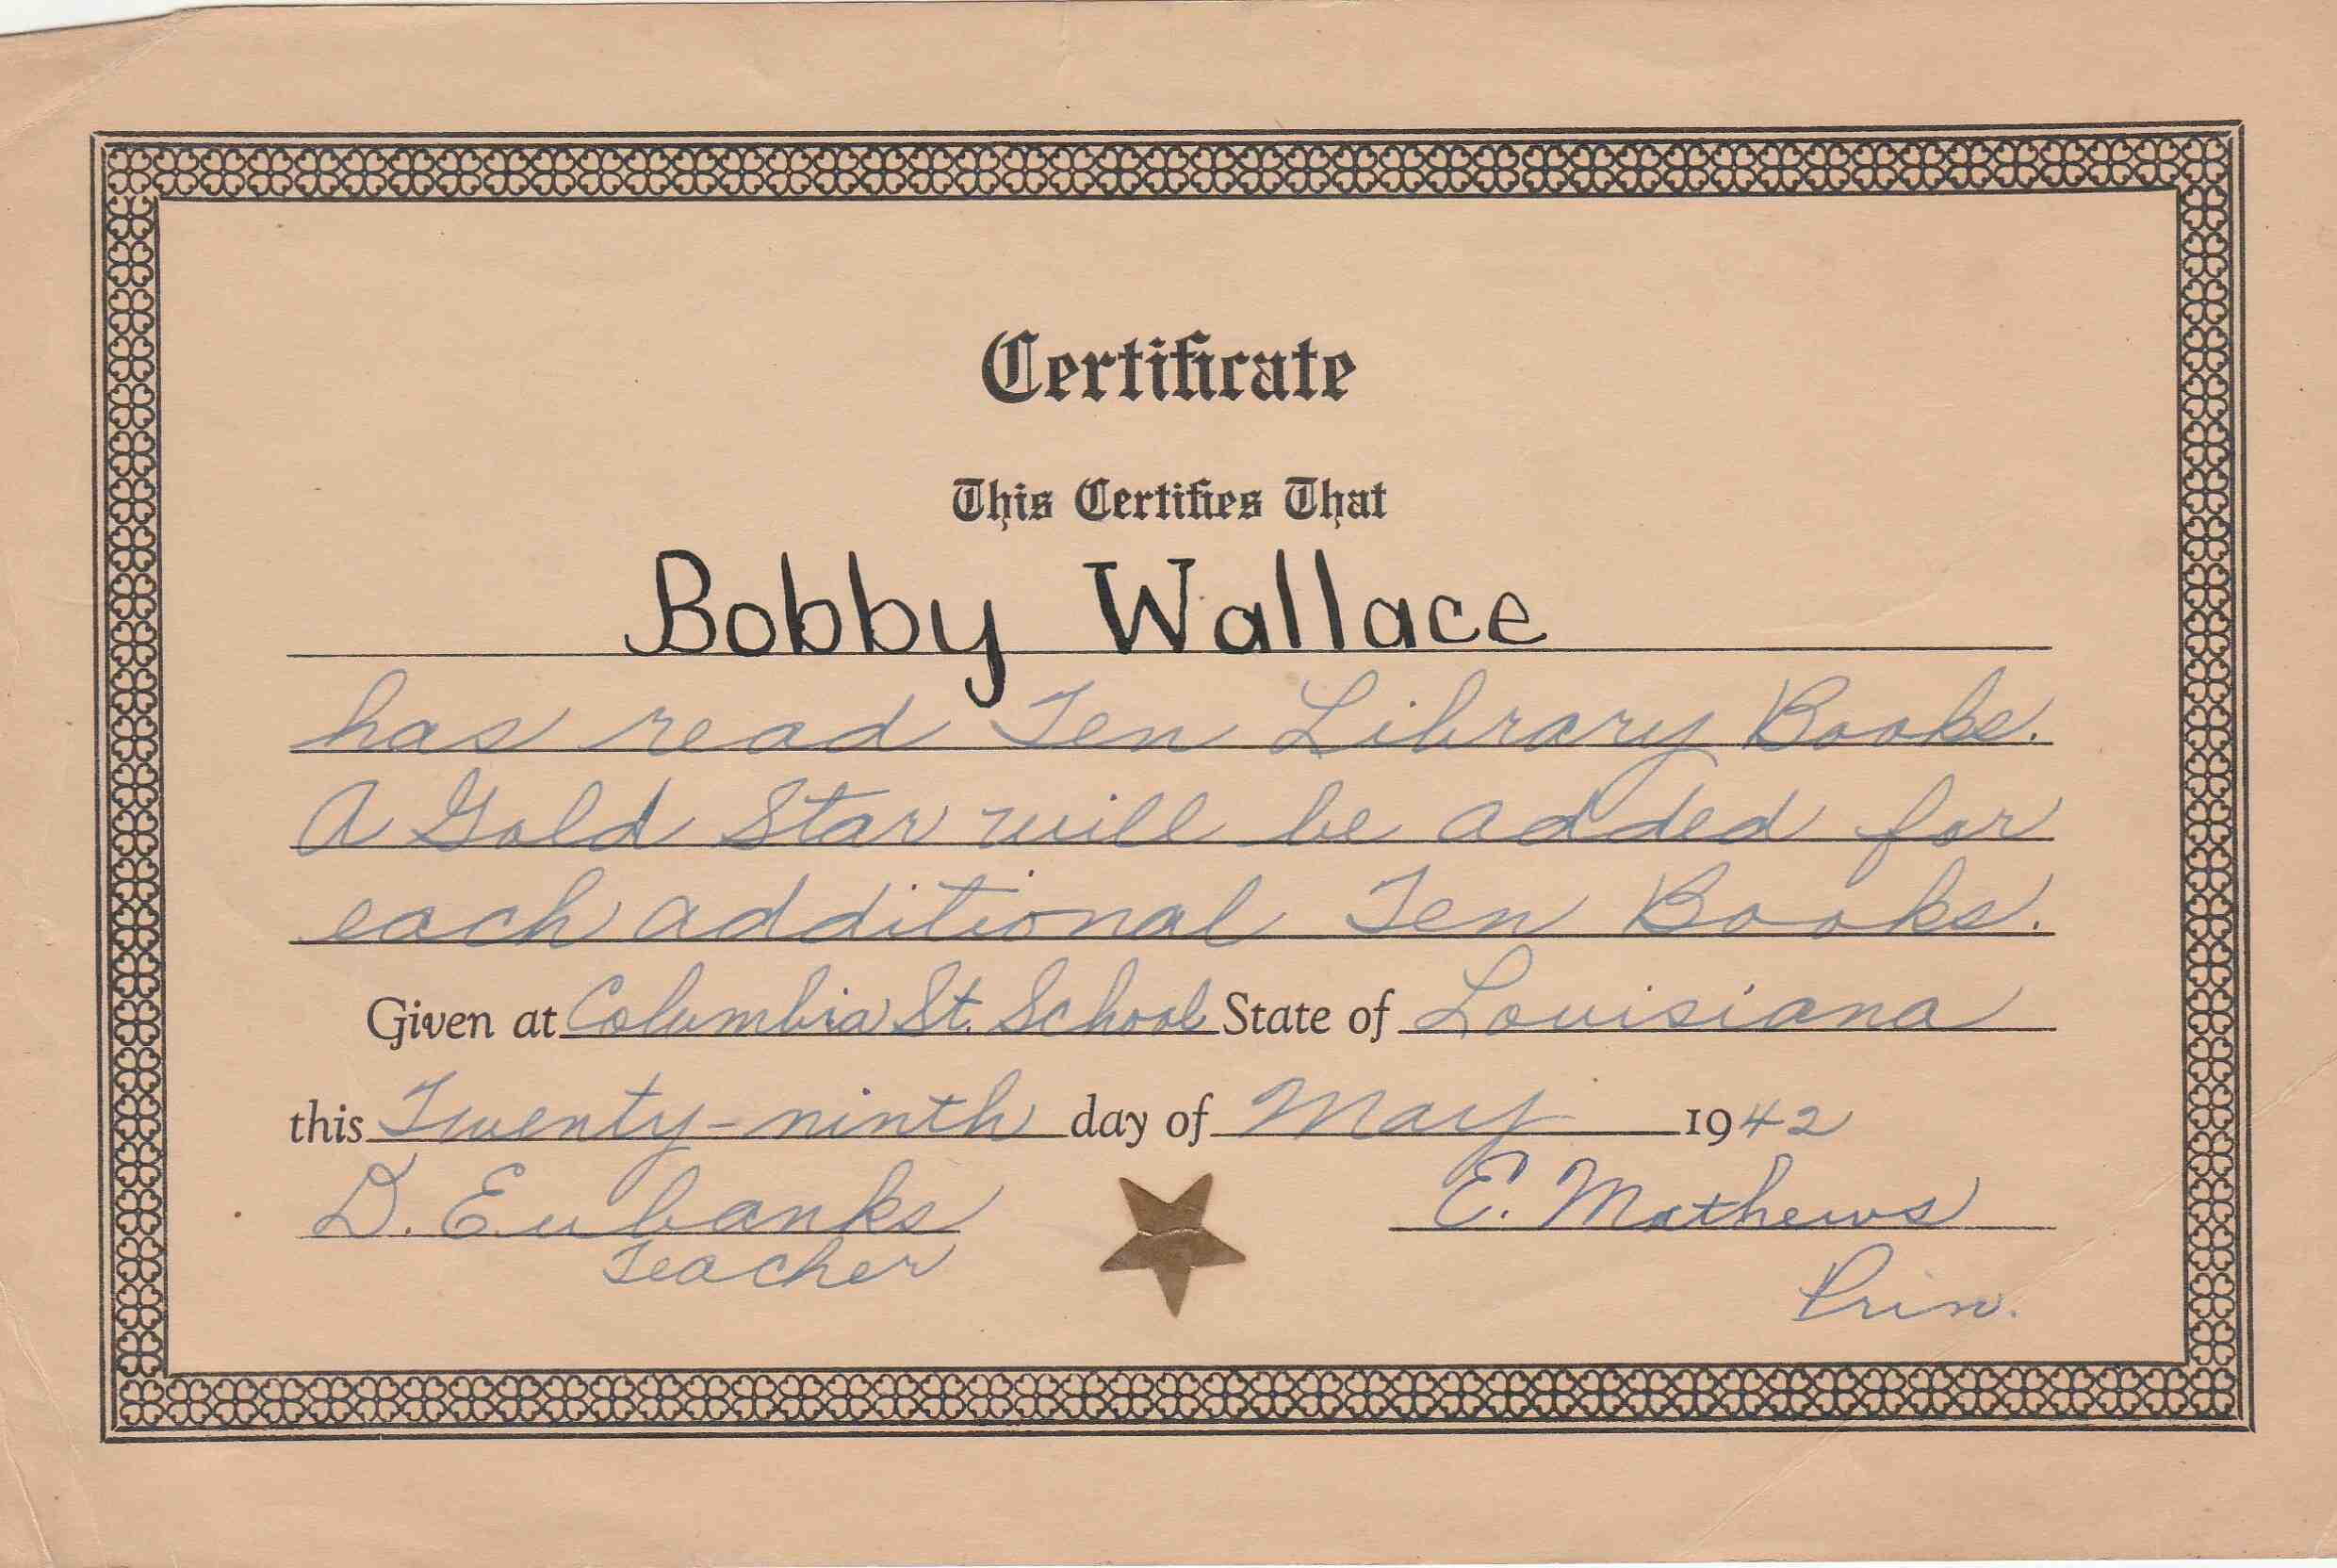 Certificate
This Certifies That
Bobby Wallace
has read Ten Library Books.
A Gold Star will be added for
each additional Ten Books.
Given at Columbia St. School State of Louisiana
this Twenty-ninth day of May 1942
D. Eubanks E. Mathews
Teacher
Prin.